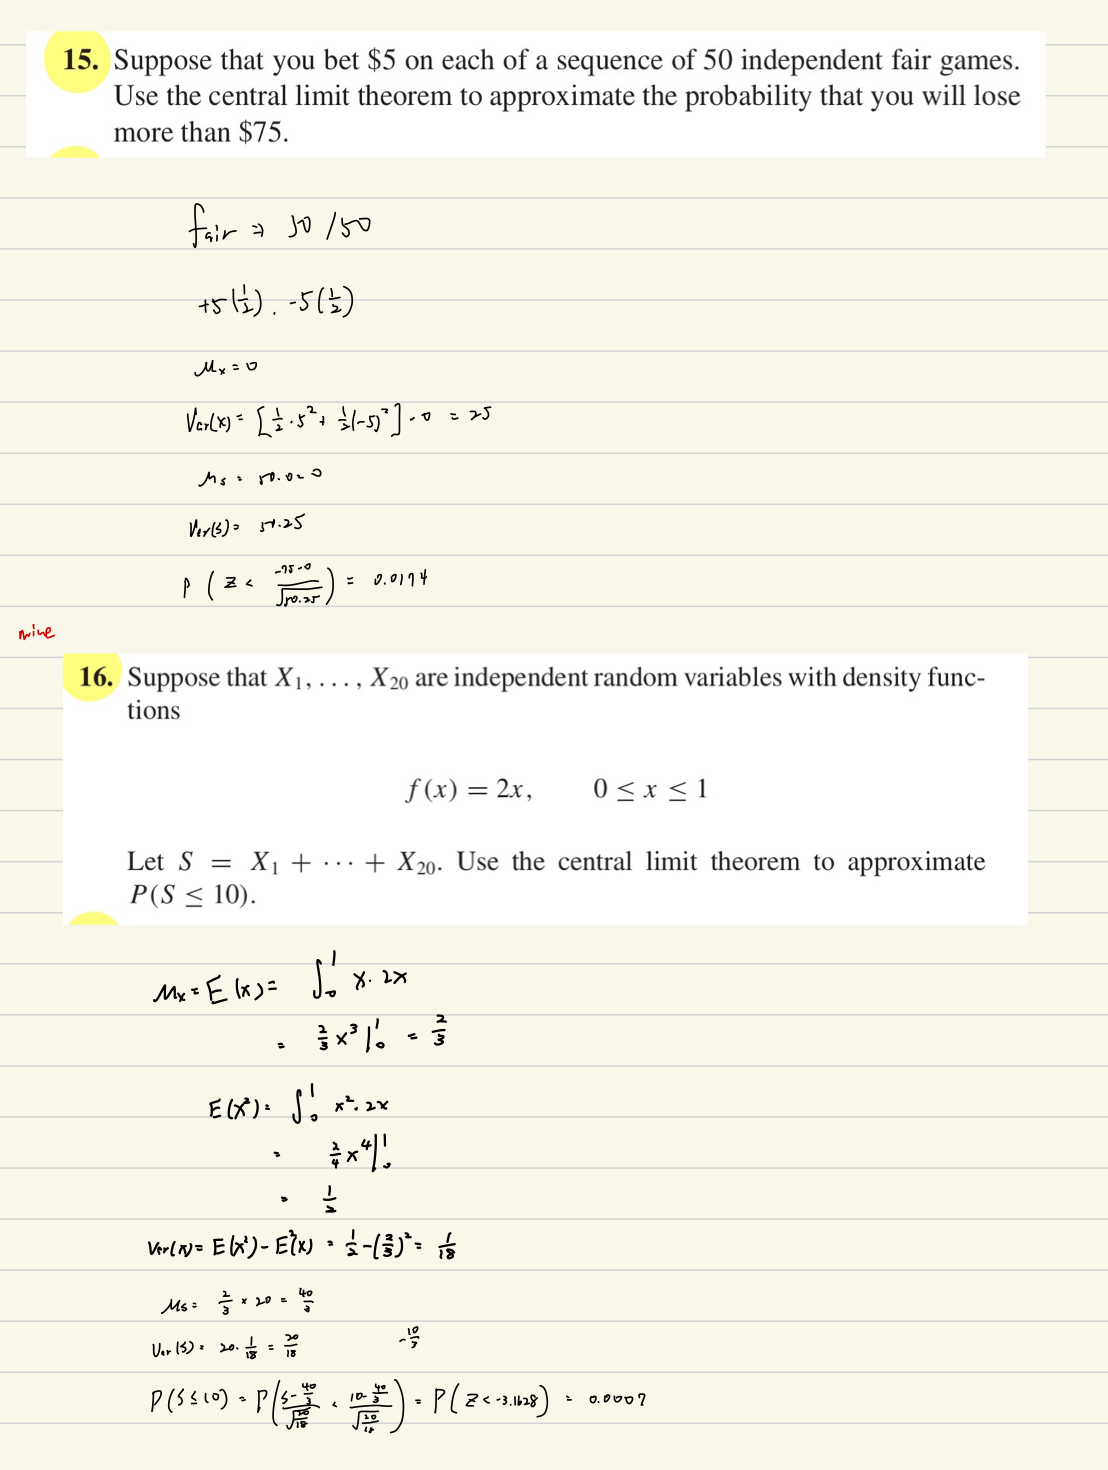 15. Suppose that you bet $5 on each of a sequence of 50 independent fair games.
Use the central limit theorem to approximate the probability that you will lose
more than $75.
fair ⇒ 50/50
+5(1/2), -5(1/2)
μx = 0
Var(x) = [1/2 · 5² + 1/2(-5)²] - 0 = 25
μs = 50·0 = 0
Var(s) = 50·25
P(Z < (-75-0)/√(50·25)) = 0.0174
mine
16. Suppose that X₁, . . . , X₂₀ are independent random variables with density func-
tions
f(x) = 2x, 0 ≤ x ≤ 1
Let S = X₁ + · · · + X₂₀. Use the central limit theorem to approximate
P(S ≤ 10).
μx = E(x) = ∫₀¹ x · 2x
= 2/3 x³ |₀¹ = 2/3
E(x²) = ∫₀¹ x² · 2x
= 2/4 x⁴ |₀¹
= 1/2
Var(x) = E(x²) - E²(x) = 1/2 - (2/3)² = 1/18
μs = 2/3 × 20 = 40/3
Var(s) = 20 · 1/18 = 20/18
-10/3
P(S ≤ 10) = P((S - 40/3)/√(20/18) < (10 - 40/3)/√(20/18)) = P(Z < -3.1628) = 0.0007